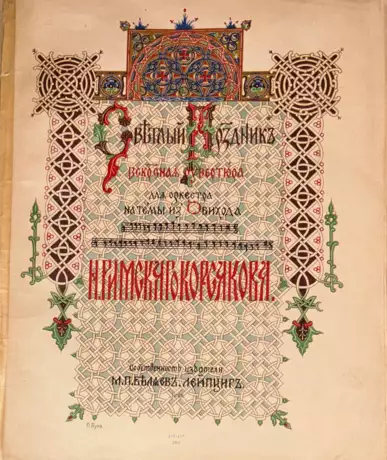 Свѣтлый Праздникъ
Воскресная увертюра
для оркестра
на темы из Обихода
Н. Римскаго Корсакова.
Собственность издателя
М.П. Бѣляевъ, Лейпцигъ.